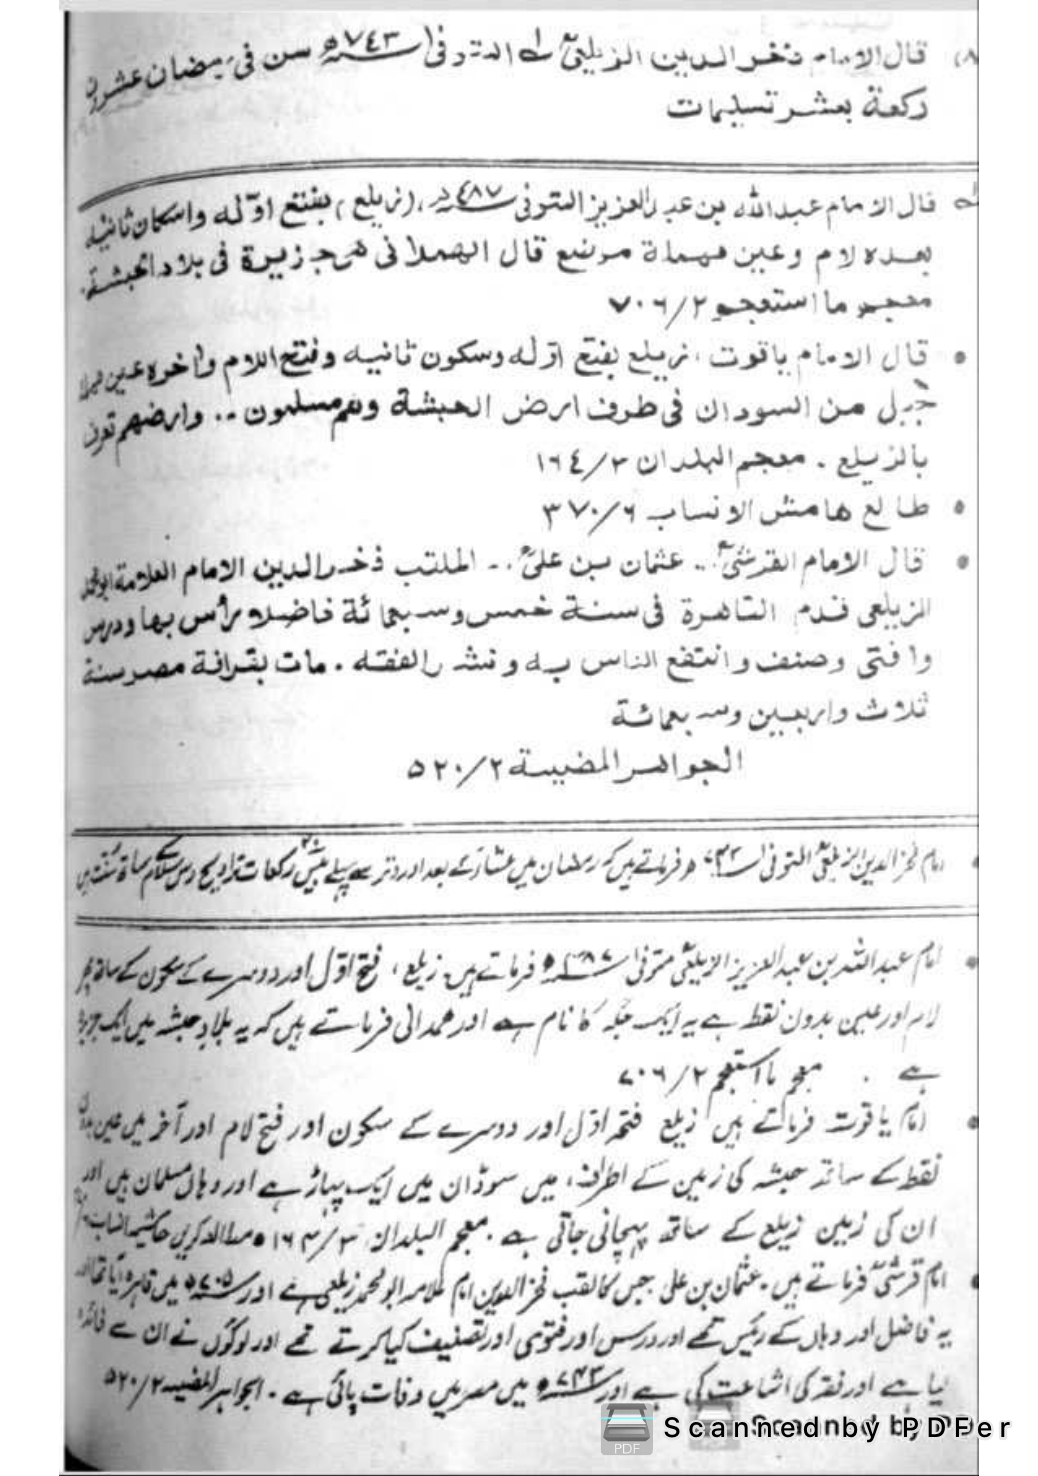 (۸ قال الامام فخر الدین الزیلعیؒ لہ المتوفی ۷۴۳ھ سن فی رمضان عشرون
رکعة بعشر تسلیمات
لہ قال الامام عبد اللہ بن عبد العزیز المتوفی ۴۸۷ھ، (زیلع) بفتح اوّله واسکان ثانیه
بعده لام وعین مهملة موضع قال الهمدانی هی جزیرة فی بلاد الحبشة،
معجم ما استعجم ۷۰۶/۲
• قال الامام یاقوت، زیلع بفتح اوّله وسکون ثانیه وفتح اللام واخره عین
جبل من السودان فی طرف ارض الحبشة وهم مسلمون .. وارضهم تعرف
بالزیلع . معجم البلدان ۱٦٤/۳
• طالع هامش الانساب ۳۷۰/۶
• قال الامام القرشیؒ .. عثمان بن علیؒ .. الملقب فخر الدین الامام العلامة
الزیلعی قدم القاهرة فی سنة خمس وسبعمائة فاضلا رأس بها ودرس
وافتی وصنف وانتفع الناس به ونشر الفقه . مات بقرافة مصر سنة
ثلاث واربعین وسبعمائة
الجواهر المضیئة ۵۲۰/۲
• امام فخر الدین الزیلعیؒ المتوفی ۷۴۳ھ فرماتے ہیں کہ رمضان میں عشاء کے بعد اور وتر سے پہلے بیس ۲۰ رکعات تراویح دس سلام ساتھ سنت ہیں
• امام عبد اللہ بن عبد العزیز الزیلعیؒ متوفی ۴۸۷ھ فرماتے ہیں۔ زیلع، فتح اوّل اور دوسرے کے سکون کے ساتھ پھر
لام اور عین بدون نقط ہے یہ ایک جگہ کا نام ہے اور ھمدانی فرماتے ہیں کہ یہ بلادِ حبشہ میں ایک جزیرہ
ہے . معجم ما استعجم ۷۰۶/۲
• امام یاقوت فرماتے ہیں زیلع فتحہ اوّل اور دوسرے کے سکون اور فتح لام اور آخر میں عین بدون
نقط کے ساتھ حبشہ کی زمین کے اطراف میں سوڈان میں ایک پہاڑ ہے اور وہاں مسلمان ہیں اور
ان کی زمین زیلع کے ساتھ پہچانی جاتی ہے . معجم البلدان ۱۶۴/۳ ۔ مطالعہ کریں حاشیہ انساب
• امام قرشیؒ فرماتے ہیں۔ عثمان بن علی جس کا لقب فخر الدین امام علامہ ابو محمد زیلعی ہے اور ۷۰۵ھ میں قاہرہ آیا تھا اور
یہ فاضل اور وہاں کے رئیس تھے اور درس اور فتوی اور تصنیف کیا کرتے تھے اور لوگوں نے ان سے فائدہ
لیا ہے اور فقہ کی اشاعت کی ہے اور ۷۴۳ھ میں مصر میں وفات پائی ہے ۔ الجواہر المضیئہ ۵۲۰/۲
PDF Scanned by PDFer